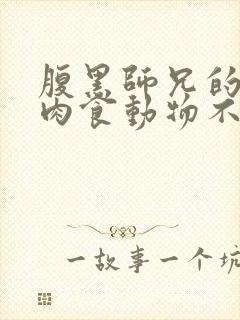 腹黑師兄的
肉食動物不
一故事一个坑